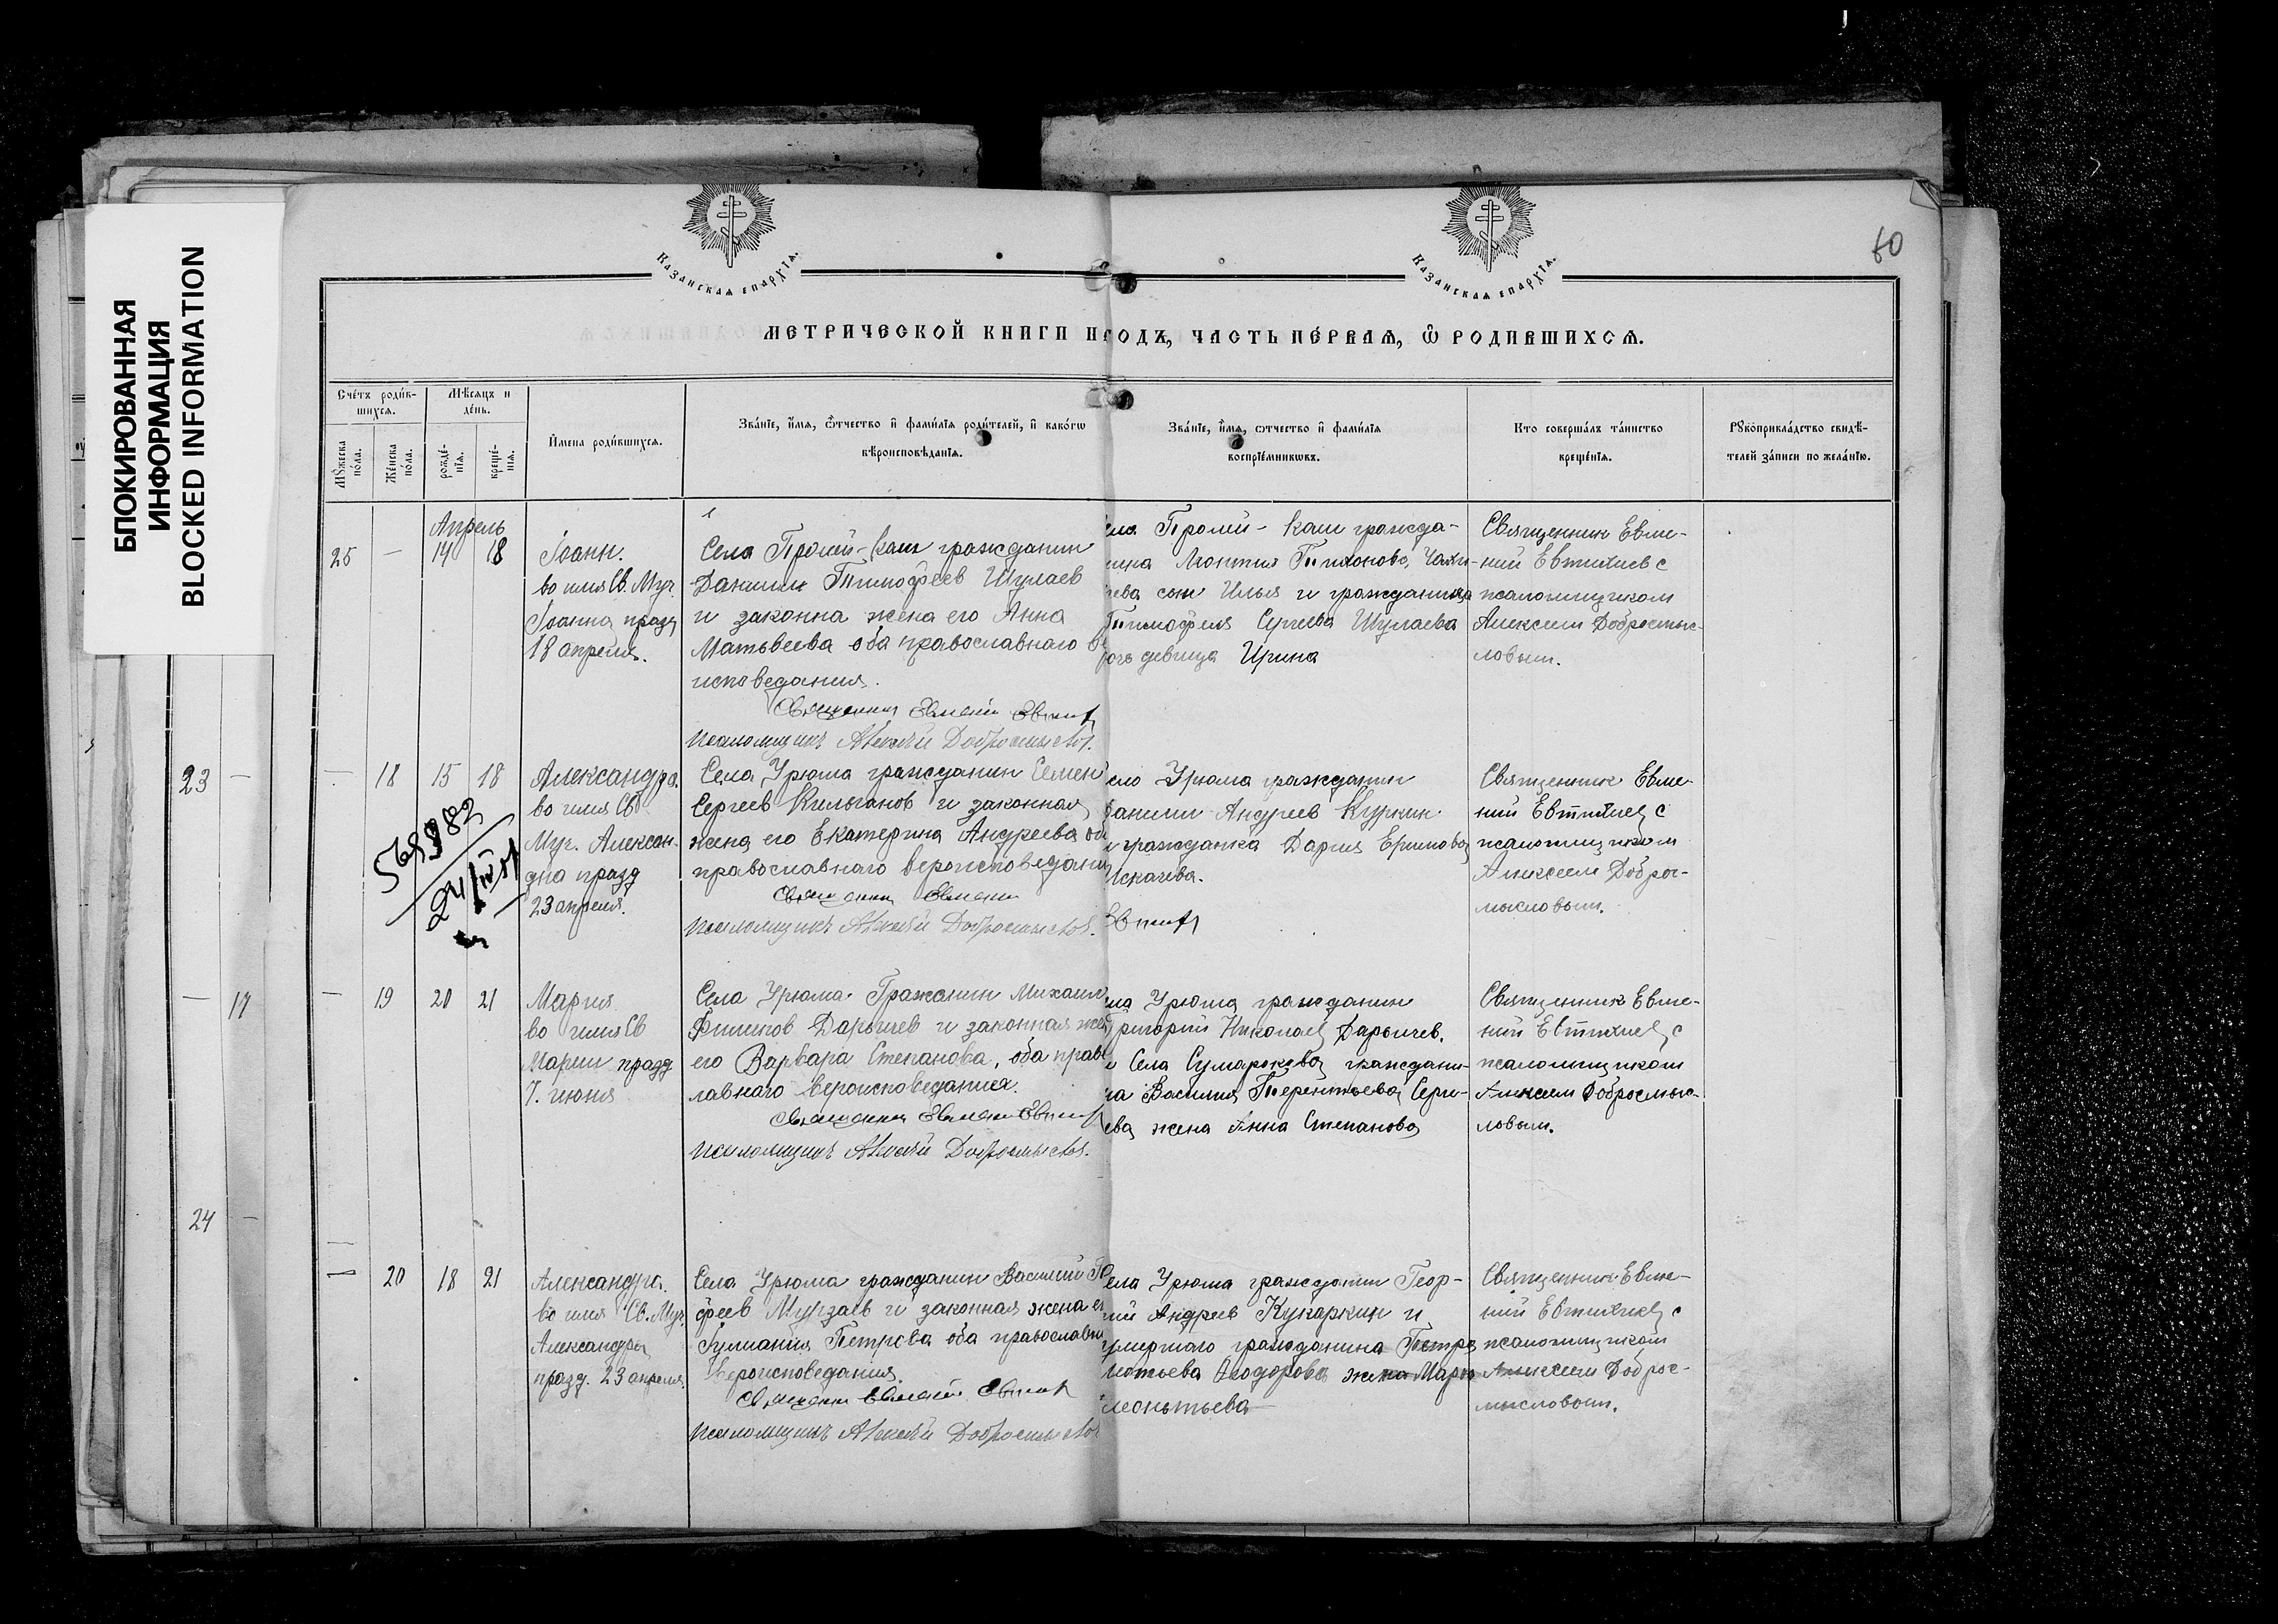 БЛОКИРОВАННАЯ
ИНФОРМАЦИЯ
BLOCKED INFORMATION
60
Казанская епархїя.
Казанская епархїя.
МЕТРИЧЕСКОЙ КНИГИ Н ОДЪ, ЧАСТЬ ПЕРВАЯ, Ѿ РОДИВШИХСЯ.
Сче́тъ роди́в-
шихся.
Мѣсяцъ и
де́нь.
Мꙋжеска
по́ла.
Же́нска
по́ла.
рожде́-
нїя.
креще́-
нїя.
И҆мена роди́вшихся.
Зва́нїе, и҆́мя, ѻ҆́тчество и҆ фами́лїя роди́телей, и҆ како́гѡ
вѣроисповѣ́данїя.
Зва́нїе, и҆́мя, ѻ҆́тчество и҆ фами́лїя
воспрїе́мникѡвъ.
Кто соверша́лъ та́инство
креще́нїя.
Рꙋкоприкла́дство свидѣ́-
телей за́писи по жела́нїю.
Апрель
25 — 14 18
Іоанн.
во имя Св. Муч.
Іоанна празд
18 апреля.
Села Пролей-Каш гражданин
Даниил Тимофеев Шулаев
и законна жена его Анна
Матвеева оба православнаго в
исповедания.
Священник Евмений Евтих
Псаломщикъ Алексѣй Добросмыслов.
ела Пролей-Каш гражда-
нина Леонтия Тихонова
сын Илья и гражданина
Тимофея Сергеева Шулаева
дочь девица Ирина
Священник Евме-
ний Евтихиев с
псаломщиком
Алексеем Добросмыс-
ловым.
23 —
— 18 15 18
Александра.
во имя Св
Муч. Алексан-
дра празд
23 апреля.
Села Урюма гражданин Семен
Сергеев Кильганов и законная
жена его Екатерина Андреева об
православнаго вероисповедания
Священник Евмений
Псаломщикъ Алексѣй Добросмыслов.
ело Урюма гражданин
Даниил Андреев Куркин
и гражданка Дария Ермилова
Искачева.
Евтих
Священник Евме-
ний Евтихиев с
псаломщиком
Алексеем Доброс-
мысловым.
— 17
— 19 20 21
Мария
во имя Св
Марии празд
7. июня
Села Урюма Гражданин Михаил
Филипов Дарычев и законная же
его Варвара Степанова, оба прав
лавнаго вероисповедания.
Священник Евмений Евтих
Псаломщикъ Алексѣй Добросмыслов.
ела Урюма гражданин
Григорий Николаев Дарычев.
и Села Сумарокова граждани-
на Василия Терентьева Серге-
ева жена Анна Степанова
Священник Евме-
ний Евтихиев с
псаломщиком
Алексеем Добросмыс-
ловым.
24 —
— 20 18 21
Александра.
во имя Св. Муч.
Александры
празд. 23 апреля.
Села Урюма гражданин Василий
феев Мурзаев и законная жена ег
Иулиания Петрова оба православн
вероисповедания.
Священник Евмений Евтих
Псаломщикъ Алексѣй Добросмыслов
ела Урюма гражданин Геор-
гий Андреев Кукаркин и
умершаго гражданина Петра
Феодорова жена Мария
Леонтьева
Священник Евме-
ний Евтихиев с
псаломщиком
Алексеем Доброс-
мысловым.